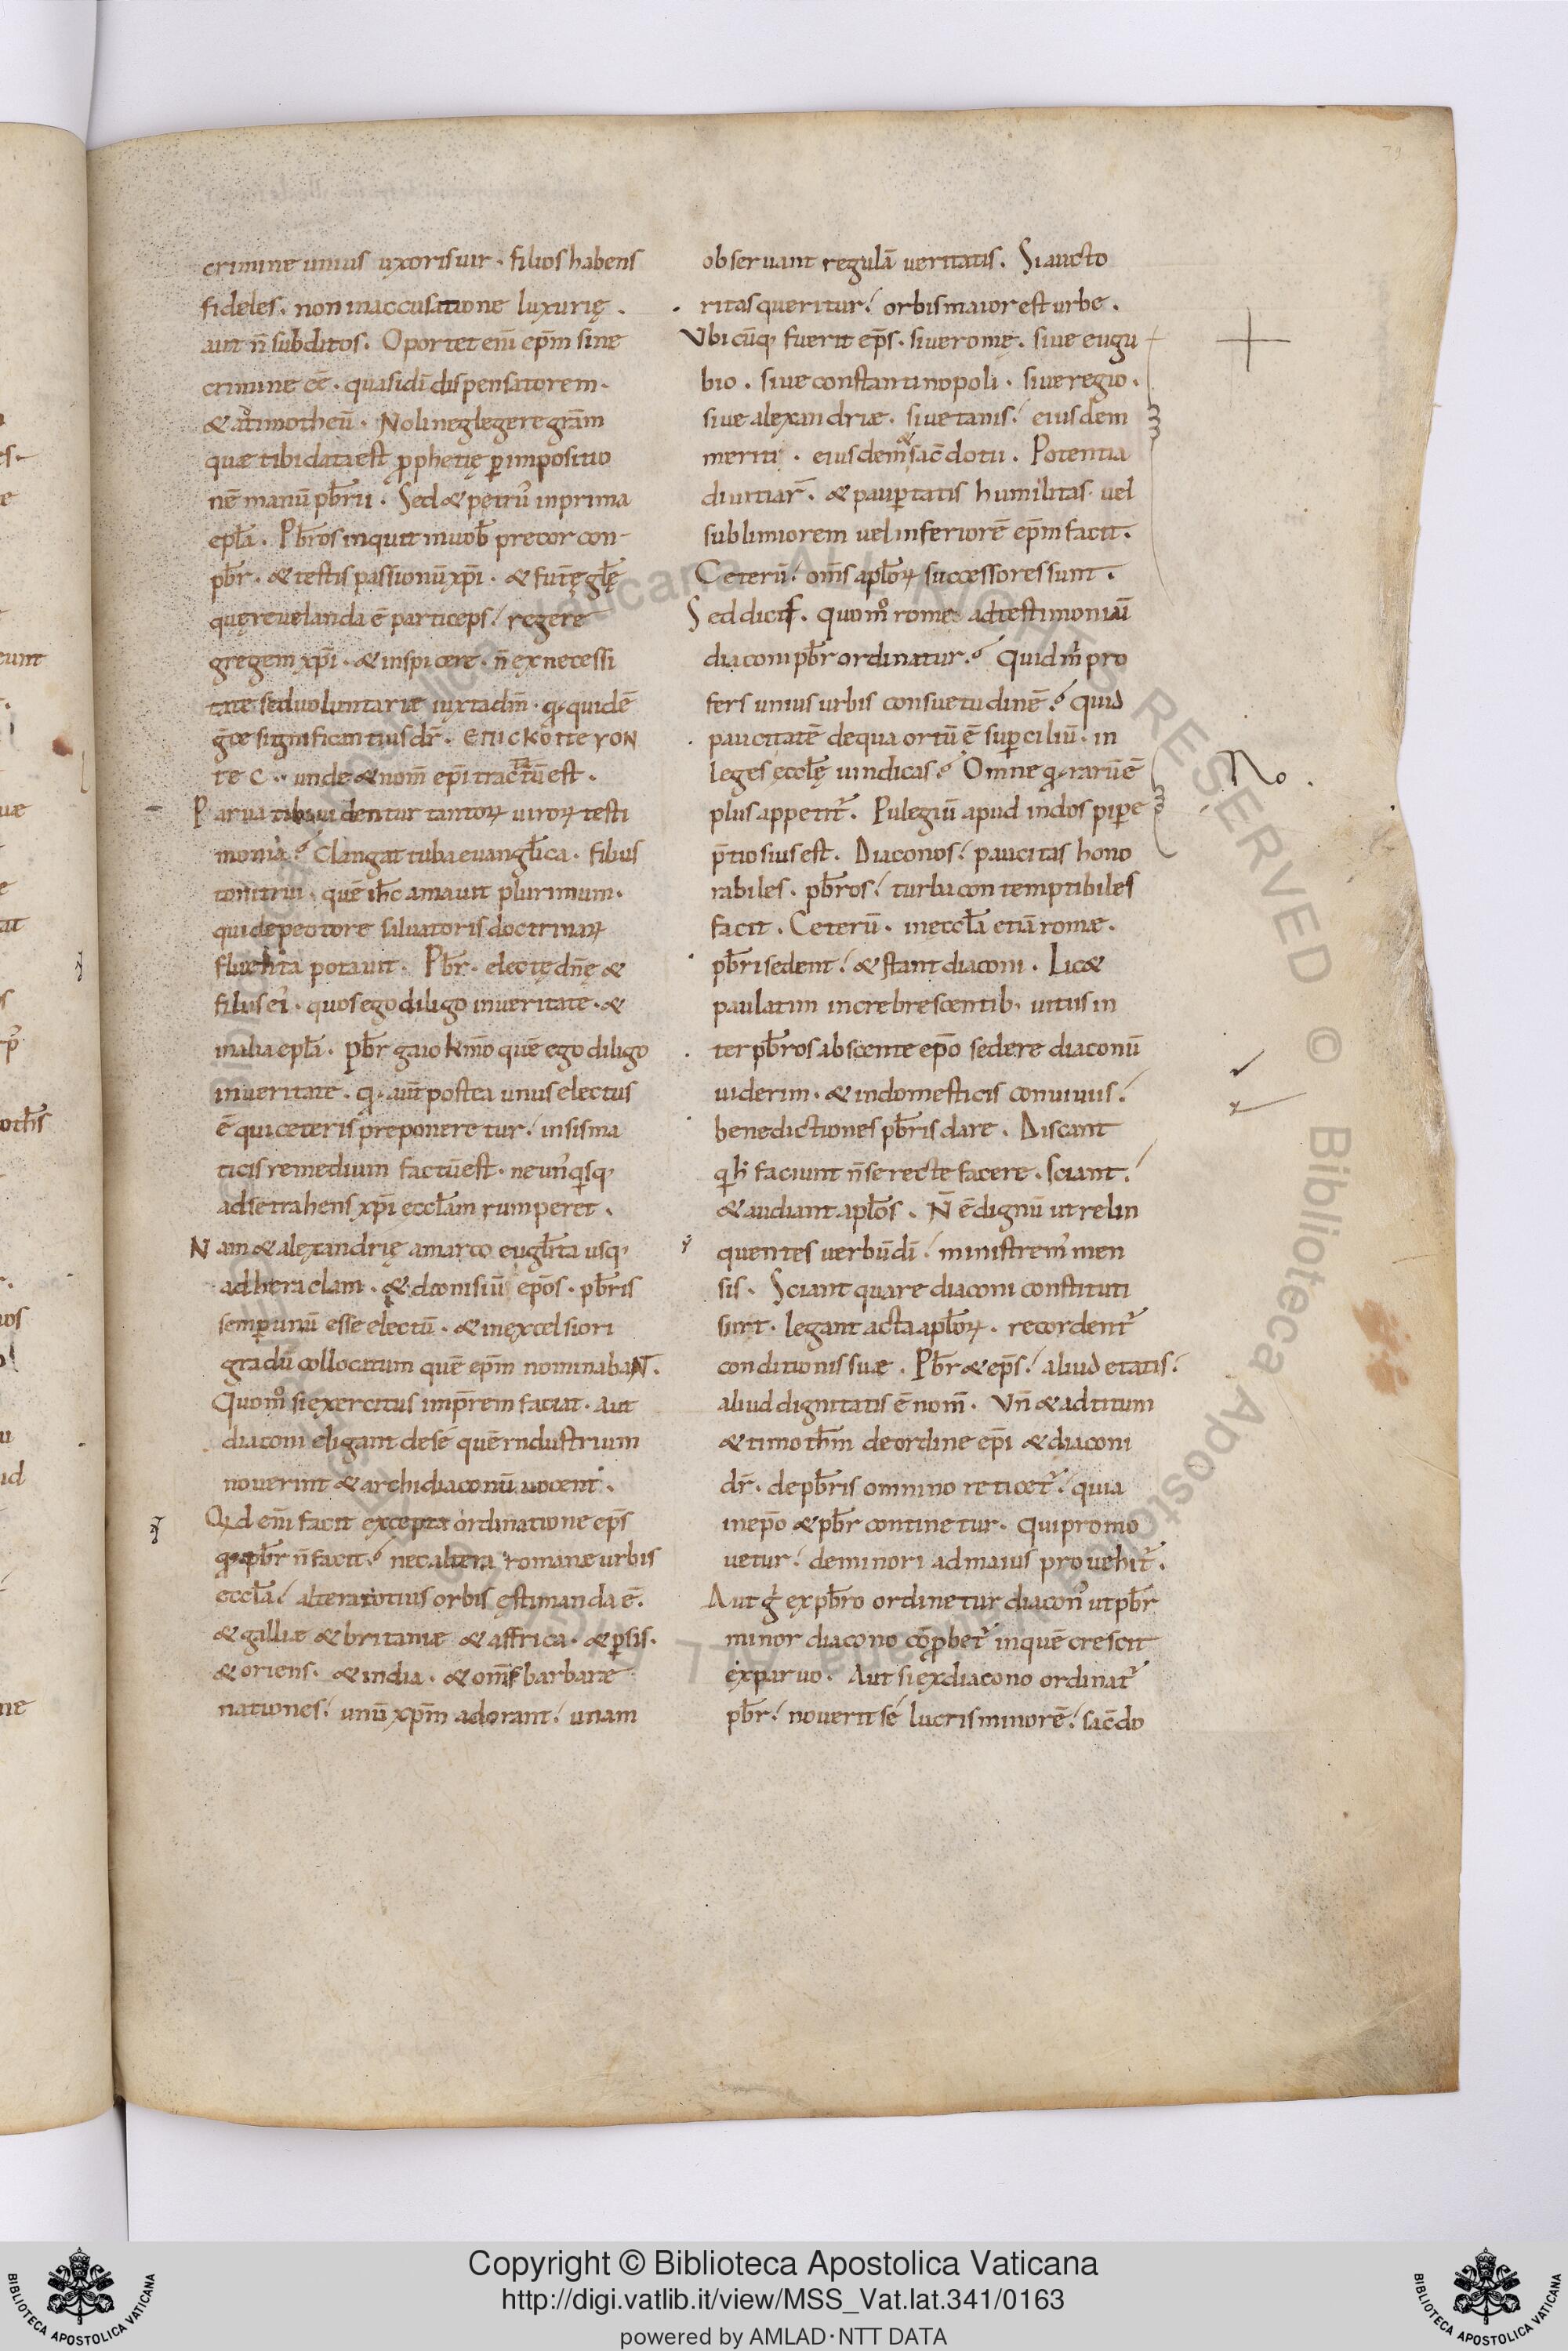 79
crimine unius uxoris uir · filios habens
fideles · non in accusatione luxurię ·
aut n̄ subditos · Oportet eni̅ ep̅m sine
crimine ee̅ · quasi di̅ dispensatorem ·
& ad timotheu̅ · Noli neglegere gra̅m
quæ tibi data est p̱rophetię p̱ impositio
ne̅ manuu̅ pb̅rii · Sed & petru̅ in prima
epl̅a · Pb̅ros inquit in uob̅ precor con-
pb̅r · & testis passionu̅ xp̅i · & futu̅ę gl̅ę
quę reuelanda e̅ particeps / regere
gregem xp̅i · & inspicere · n̄ ex necessi
tate sed uoluntariæ iuxta dm̅ · q̇ quide̅
gr̅ce significantius dr̅ · ЄΠICKOΠEYON
TEC · unde & nom̅ ep̅i tractu̅ est ·
Parua tibi uidentur tantoꝝ uiroꝝ testi
monia ? Clangat tuba euangl̅ica · filius
tonitrui · que̅ ih̅c amauit plurimum ·
qui de pectore saluatoris doctrinaꝝ
fluenta potauit · Pb̅r · electę dn̅ę &
filiis ei' · quos ego diligo in ueritate · &
in alia epl̅a · pb̅r gaio km̅o que̅ ego diligo
in ueritate · q̇ aut̅ postea unus electus
e̅ qui ceteris preponeretur / in sisma
ticis remedium factu̅ est · ne un' q̇sq;
ad se trahens xp̅i eccl̅am rumperet ·
Nam & alexandrię a marco eugl̅ista usq;
ad heraclam · & dionisiu̅ ep̅os · pb̅ris
semp̱ unu̅ esse electu̅ · & in excelsiori
gradu̅ collocatum que̅ ep̅m nominabaNT ·
Quom̊ si exercitus imp̅rem faciat · aut
diaconi eligant de se que̅ industrium
nouerint & archidiaconu̅ uocent ·
Qd̅ eni̅ facit excepta ordinatione ep̅s
q̇ pb̅r n̄ facit ? nec altera romanæ urbis
eccl̅a / altera totius orbis ęstimanda e̅ ·
& galliæ & britaniæ & affrica · & p̱sis ·
& oriens · & india · & om̅s barbaræ
nationes / unu̅ xp̅m adorant / unam
obseruant regula̅ ueritatis · Si aucto
ritas queritur / orbis maior est urbe ·
Vbicu̅q; fuerit ep̅s · siue romę · siue eugu
bio · siue constantinopoli · siue regio ·
siue alexandriæ · siue tanis / eiusdem
meriti · eiusdem & sac̅dotii · Potentia
diuitiar̅ · & paup̱tatis humilitas · uel
sublimiorem uel inferiore̅ ep̅m facit ·
Ceteru̅ / om̅s apl̅oꝝ successores sunt ·
Sed dicis · quom̊ rome ad testimoniu̅
diaconi pb̅r ordinatur ? Quid m̅ pro
fers unius urbis consuetudine̅ ? quid
paucitate̅ de qua ortu̅ e̅ sup̱ciliu̅ · in
leges eccl̅ę uindicas ? Omne q̇ raru̅ e̅
plus appetit̅ · Pulegiu̅ apud indos pip̱e
No ·
p̅tiosius est · Diaconos / paucitas hono
rabiles · pb̅ros / turba contemptibiles
facit · Ceteru̅ · in eccl̅a etia̅ romæ ·
pb̅ri sedent / & stant diaconi · Lic&
paulatim increbrescentib; uitiis in
ter pb̅ros abscente ep̅o sedere diaconu̅
uiderim · & in domesticis conuiuiis /
benedictiones pb̅ris dare · Discant
q̇ h̅ faciunt n̄ se recte facere · sciant /
& audiant apl̅os · N̅ e̅ dignu̅ ut relin
quentes uerbu̅ di̅ / ministrem' men
sis · Sciant quare diaconi constituti
sint · legant acta apl̅oꝝ · recordent̅
conditionis suæ · Pb̅r & ep̅s / aliud etatis /
aliud dignitatis e̅ nom̅ · Vn̅ & ad titum
& timoth̅m de ordine ep̅i & diaconi
dr̅ · de pb̅ris omnino reticet̅ / quia
in ep̅o & pb̅r continetur · Qui promo
uetur / de minori ad maius prouehit̅ ·
Aut g̊ ex pb̅ro ordinetur diacon' ut pb̅r
minor diacono co̅p̱robet̅ in que̅ crescit
ex paruo · Aut si ex diacono ordinat̅
pb̅r / nouerit se lucris minore̅ / sac̅do
Copyright © Biblioteca Apostolica Vaticana
http://digi.vatlib.it/view/MSS_Vat.lat.341/0163
powered by AMLAD·NTT DATA